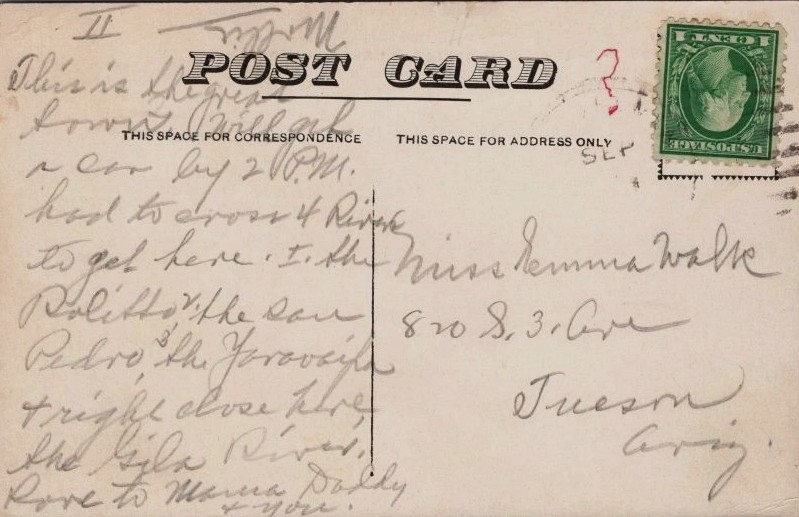 II
POST CARD
THIS SPACE FOR CORRESPONDENCE
THIS SPACE FOR ADDRESS ONLY
U.S. POSTAGE
1 CENT 1
SEP
This is the great
town. Will get
a car by 2 P.M.
had to cross 4 Rivers
to get here. I. the
Rolitto, 2. the San
Pedro, 3 the Yaravaipa
& right close here,
the Gila River.
Love to Mama Daddy
& you.
Miss Emma Walk
820 S. 3. Ave
Tucson
Ariz.